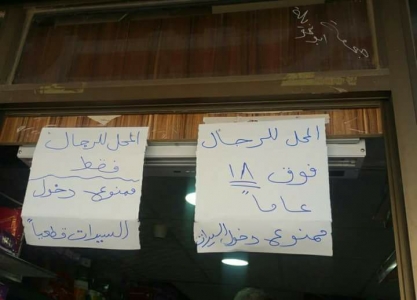 المحل للرجال
فقط
ممنوع دخول
السيدات قطعياً
المحل للرجال
فوق ١٨
عاماً
ممنوع دخول